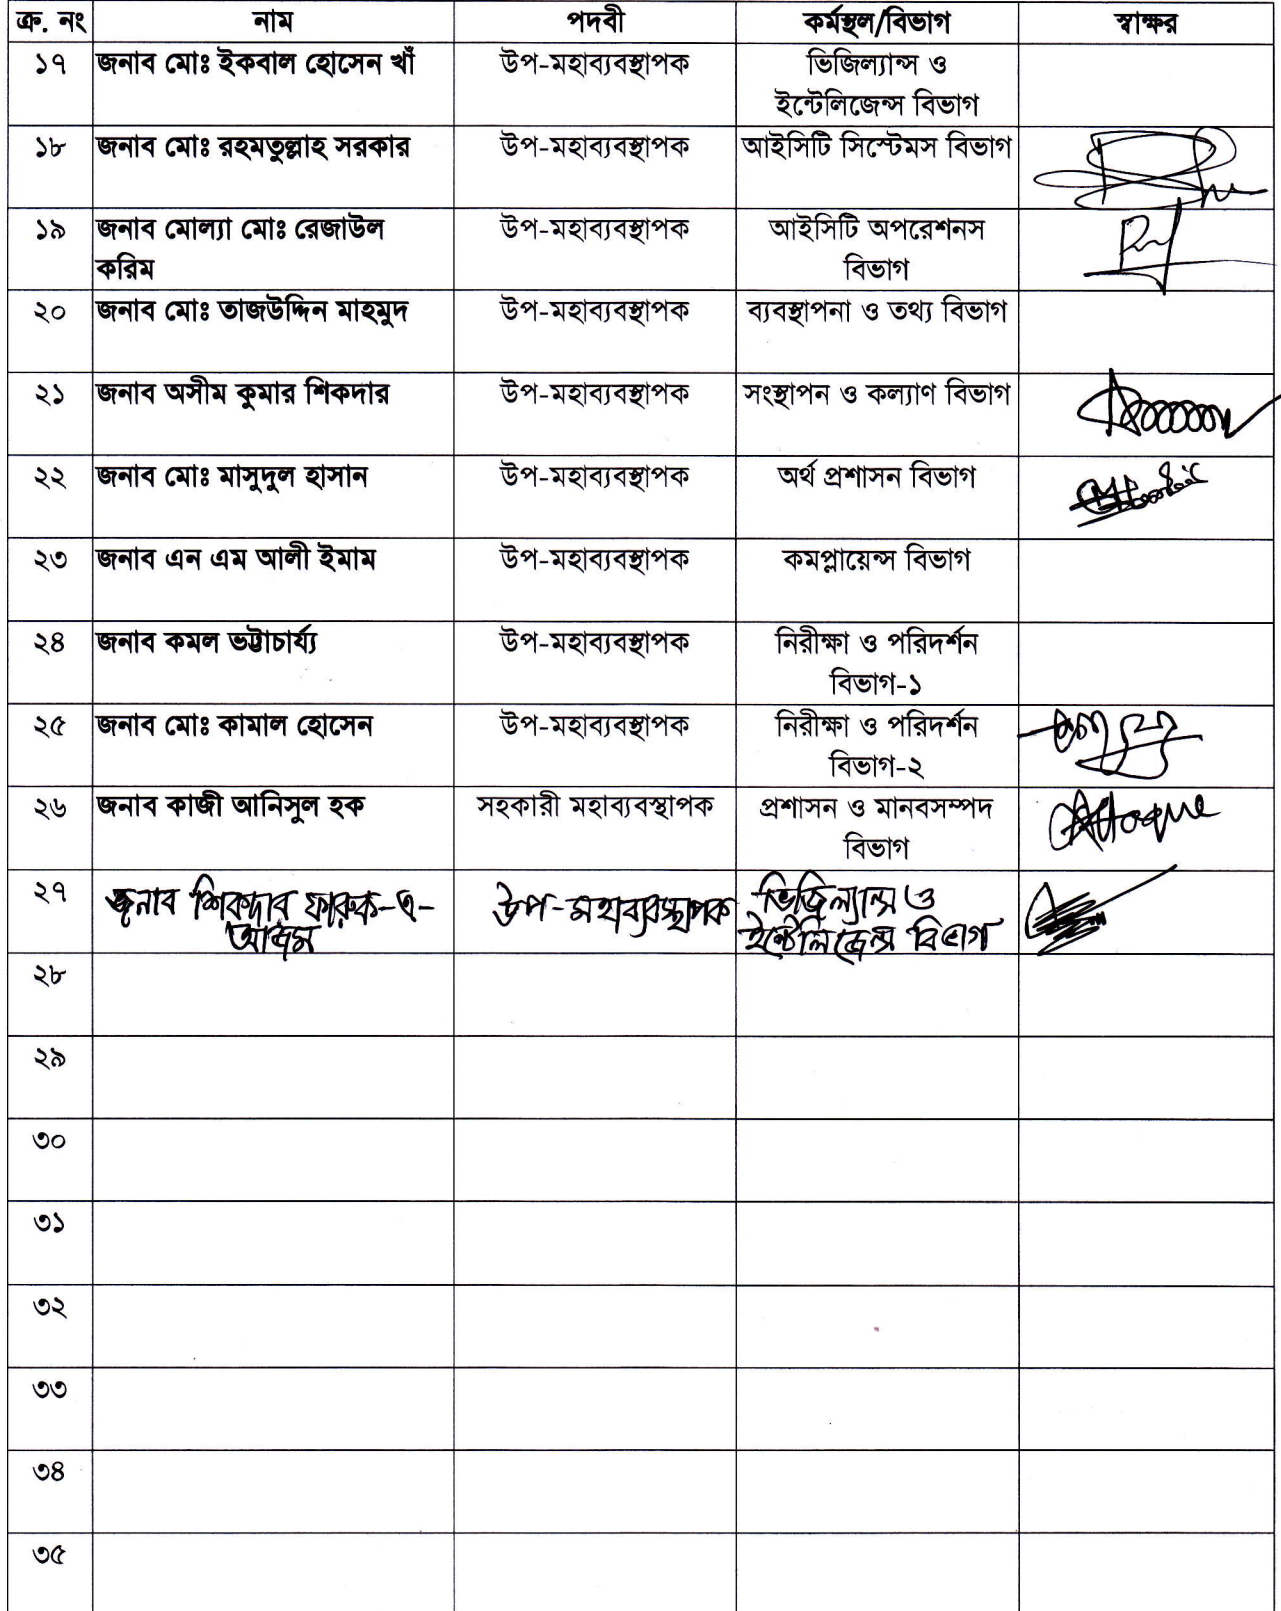 ক্র. নং নাম পদবী কর্মস্থল/বিভাগ স্বাক্ষর
১৭ জনাব মোঃ ইকবাল হোসেন খাঁ উপ-মহাব্যবস্থাপক ভিজিল্যান্স ও
ইন্টেলিজেন্স বিভাগ
১৮ জনাব মোঃ রহমতুল্লাহ সরকার উপ-মহাব্যবস্থাপক আইসিটি সিস্টেমস বিভাগ
১৯ জনাব মোল্যা মোঃ রেজাউল উপ-মহাব্যবস্থাপক আইসিটি অপরেশনস
করিম বিভাগ
২০ জনাব মোঃ তাজউদ্দিন মাহমুদ উপ-মহাব্যবস্থাপক ব্যবস্থাপনা ও তথ্য বিভাগ
২১ জনাব অসীম কুমার শিকদার উপ-মহাব্যবস্থাপক সংস্থাপন ও কল্যাণ বিভাগ
২২ জনাব মোঃ মাসুদুল হাসান উপ-মহাব্যবস্থাপক অর্থ প্রশাসন বিভাগ
২৩ জনাব এন এম আলী ইমাম উপ-মহাব্যবস্থাপক কমপ্লায়েন্স বিভাগ
২৪ জনাব কমল ভট্টাচার্য্য উপ-মহাব্যবস্থাপক নিরীক্ষা ও পরিদর্শন
বিভাগ-১
২৫ জনাব মোঃ কামাল হোসেন উপ-মহাব্যবস্থাপক নিরীক্ষা ও পরিদর্শন
বিভাগ-২
২৬ জনাব কাজী আনিসুল হক সহকারী মহাব্যবস্থাপক প্রশাসন ও মানবসম্পদ
বিভাগ
২৭ জনাব শিকদার ফারুক-এ- উপ-মহাব্যবস্থাপক ভিজিল্যান্স ও
আজম ইন্টেলিজেন্স বিভাগ
২৮
২৯
৩০
৩১
৩২
৩৩
৩৪
৩৫